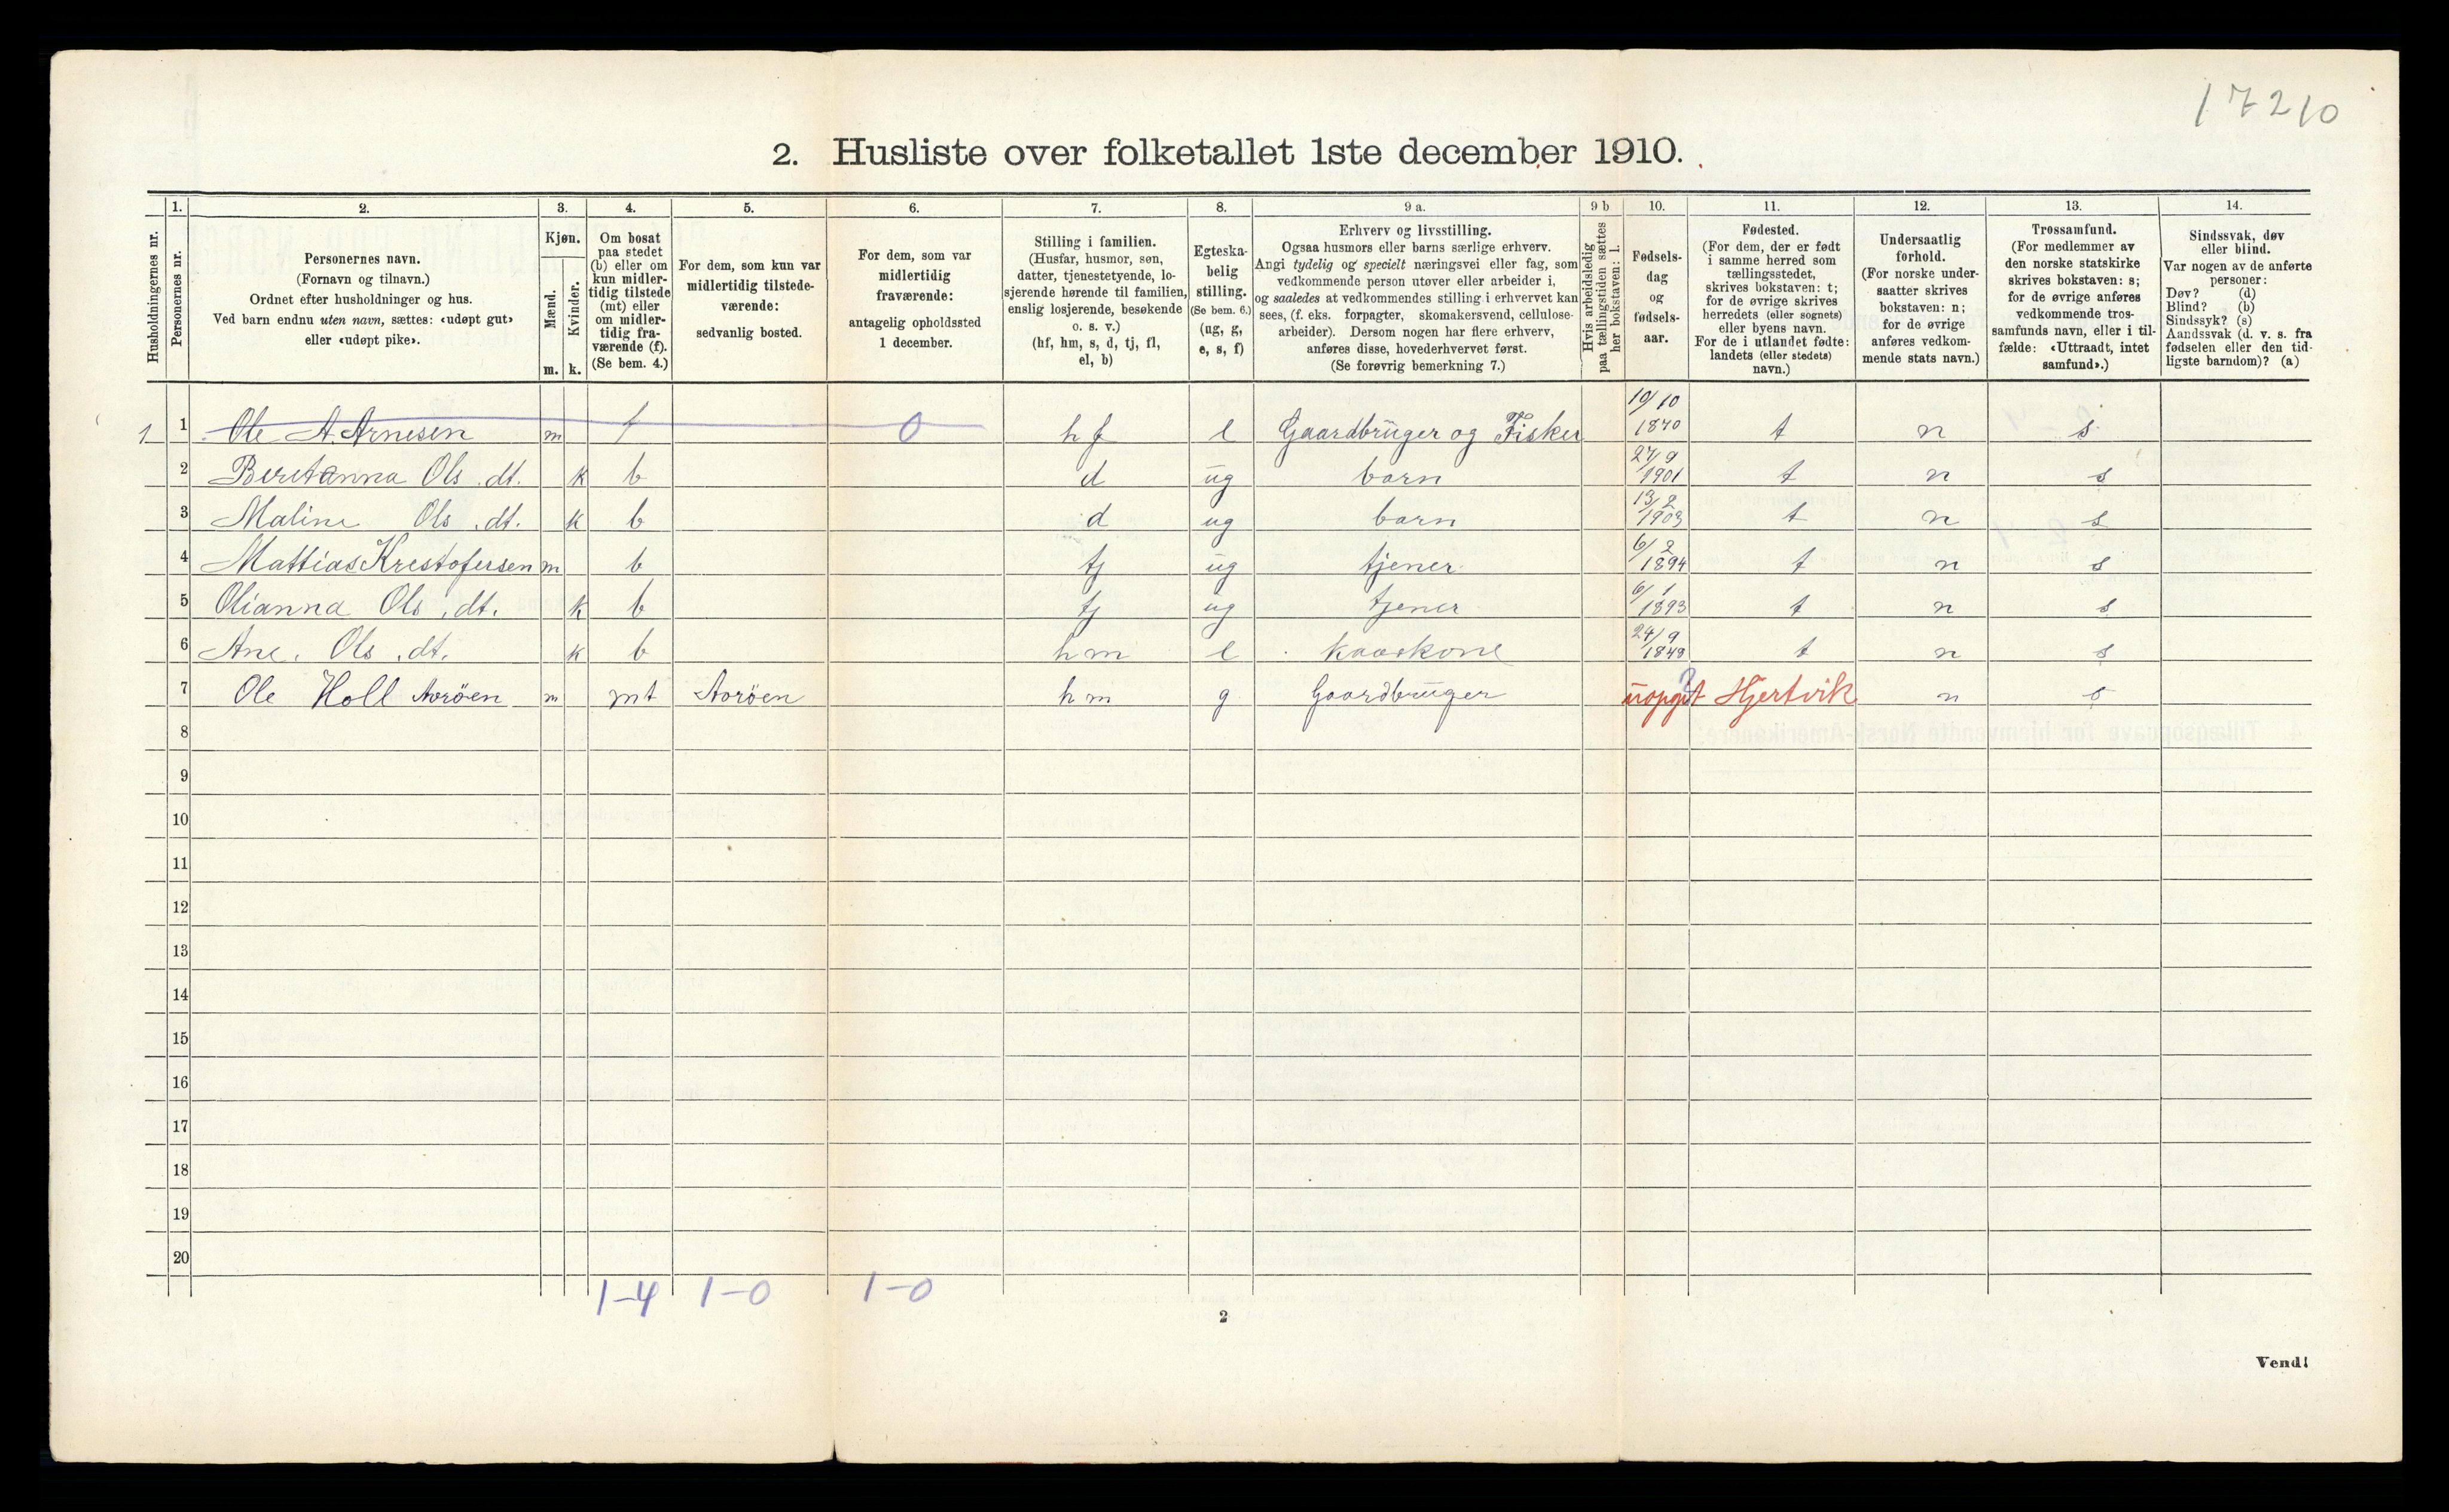 17210
2. Husliste over folketallet 1ste december 1910.
Husholdningernes nr.
1.
Personernes nr.
2.
Personernes navn.
(Fornavn og tilnavn.)
Ordnet efter husholdninger og hus.
Ved barn endnu uten navn, sættes: «udøpt gut»
eller «udøpt pike».
3.
Kjøn.
Mænd.
Kvinder.
m. k.
4.
Om bosat
paa stedet
(b) eller om
kun midler-
tidig tilstede
(mt) eller
om midler-
tidig fra-
værende (f).
(Se bem. 4.)
5.
For dem, som kun var
midlertidig tilstede-
værende:
sedvanlig bosted.
6.
For dem, som var
midlertidig
fraværende:
antagelig opholdssted
1 december.
7.
Stilling i familien.
(Husfar, husmor, søn,
datter, tjenestetyende, lo-
sjerende hørende til familien,
enslig losjerende, besøkende
o. s. v.)
(hf, hm, s, d, tj, fl,
el, b)
8.
Egteska-
belig
stilling.
(Se bem. 6.)
(ug, g,
e, s, f)
9 a.
Erhverv og livsstilling.
Ogsaa husmors eller barns særlige erhverv.
Angi tydelig og specielt næringsvei eller fag, som
vedkommende person utøver eller arbeider i,
og saaledes at vedkommendes stilling i erhvervet kan
sees, (f. eks. forpagter, skomakersvend, cellulose-
arbeider). Dersom nogen har flere erhverv,
anføres disse, hovederhvervet først.
(Se forøvrig bemerkning 7.)
9 b
Hvis arbeidsledig
paa tællingstiden sættes
her bokstaven: l.
10.
Fødsels-
dag
og
fødsels-
aar.
11.
Fødested.
(For dem, der er født
i samme herred som
tællingsstedet,
skrives bokstaven: t;
for de øvrige skrives
herredets (eller sognets)
eller byens navn.
For de i utlandet fødte:
landets (eller stedets)
navn.)
12.
Undersaatlig
forhold.
(For norske under-
saatter skrives
bokstaven: n;
for de øvrige
anføres vedkom-
mende stats navn.)
13.
Trossamfund.
(For medlemmer av
den norske statskirke
skrives bokstaven: s;
for de øvrige anføres
vedkommende tros-
samfunds navn, eller i til-
fælde: «Uttraadt, intet
samfund».)
14.
Sindssvak, døv
eller blind.
Var nogen av de anførte
personer:
Døv? (d)
Blind? (b)
Sindssyk? (s)
Aandssvak (d. v. s. fra
fødselen eller den tid-
ligste barndom)? (a)
1 1 Ole A. Arnesen m f 0 hf e Gaardbrüger og Fisker 19/10 1870 t n s
2 Beretanna Ols .dt. k b d ug barn 27/9 1901 t n s
3 Maline Ols .dt. k b d ug barn 13/2 1903 t n s
4 Mattias Krestofersen m b tj ug tjener 6/2 1894 t n s
5 Olianna Ols .dt. k b tj ug tjener 6/1 1893 t n s
6 Ane. Ols .dt. k b hm e kaarkone 24/9 1849 t n s
7 Ole Holl Aorøen m mt Aorøen hm g Gaardbrüger uopgit ? Hjertvik n s
8
9
10
11
12
13
14
15
16
17
18
19
20
1-4 1-0 1-0
2
Vend!